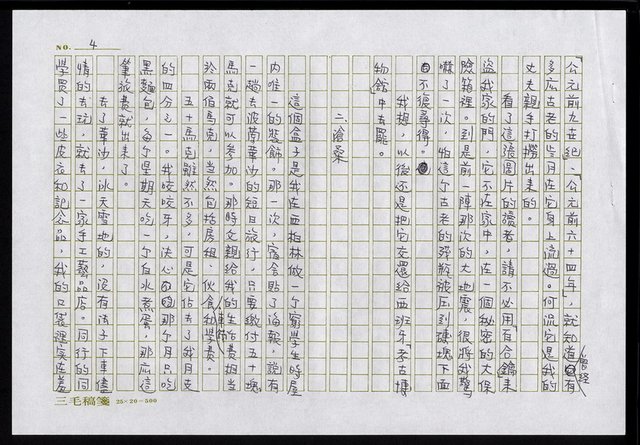 NO. 4
「公元前九世紀、公元前六十四年」,就知道曾經有
多麼古老的歲月在它身上流過。何況它是我的
丈夫親手打撈出來的。
看了這張圖片的讀者,請不必用「百合鑰」來
盜我家的門,它不在家中,在一個秘密的大保
險箱裡。到是前一陣那次的大地震,很將我驚
嚇了一次,怕這個古老的彈瓶被壓到磚塊下面
不復尋得。
我想,以後還是把它交還給西班牙「考古博
物館」中去罷。
二、滄桑
這個盒子是我在西柏林做一個窮學生時屋
內唯一的裝飾。那一次,宿舍貼了海報,說有
一趟去波蘭華沙的短日旅行,只要繳付五十塊
馬克就可以參加。那時父親給我的生活費相當
於兩佰馬克,當然包括房租、伙食、車費和學費。
五十馬克雖然不多,可是它佔去了我月支
的四分之一。我咬咬牙,決心那個月只吃
黑麵包,每個星期天吃一個白水煮蛋,那麼這
筆旅費就出來了。
去了華沙,冰天雪地的,沒有法子下車盡
情的去玩,就去了一家手工藝品店。同行的同
學買了一些皮衣和記念品,我的口袋裡實在羞
三毛稿箋 25×20=500